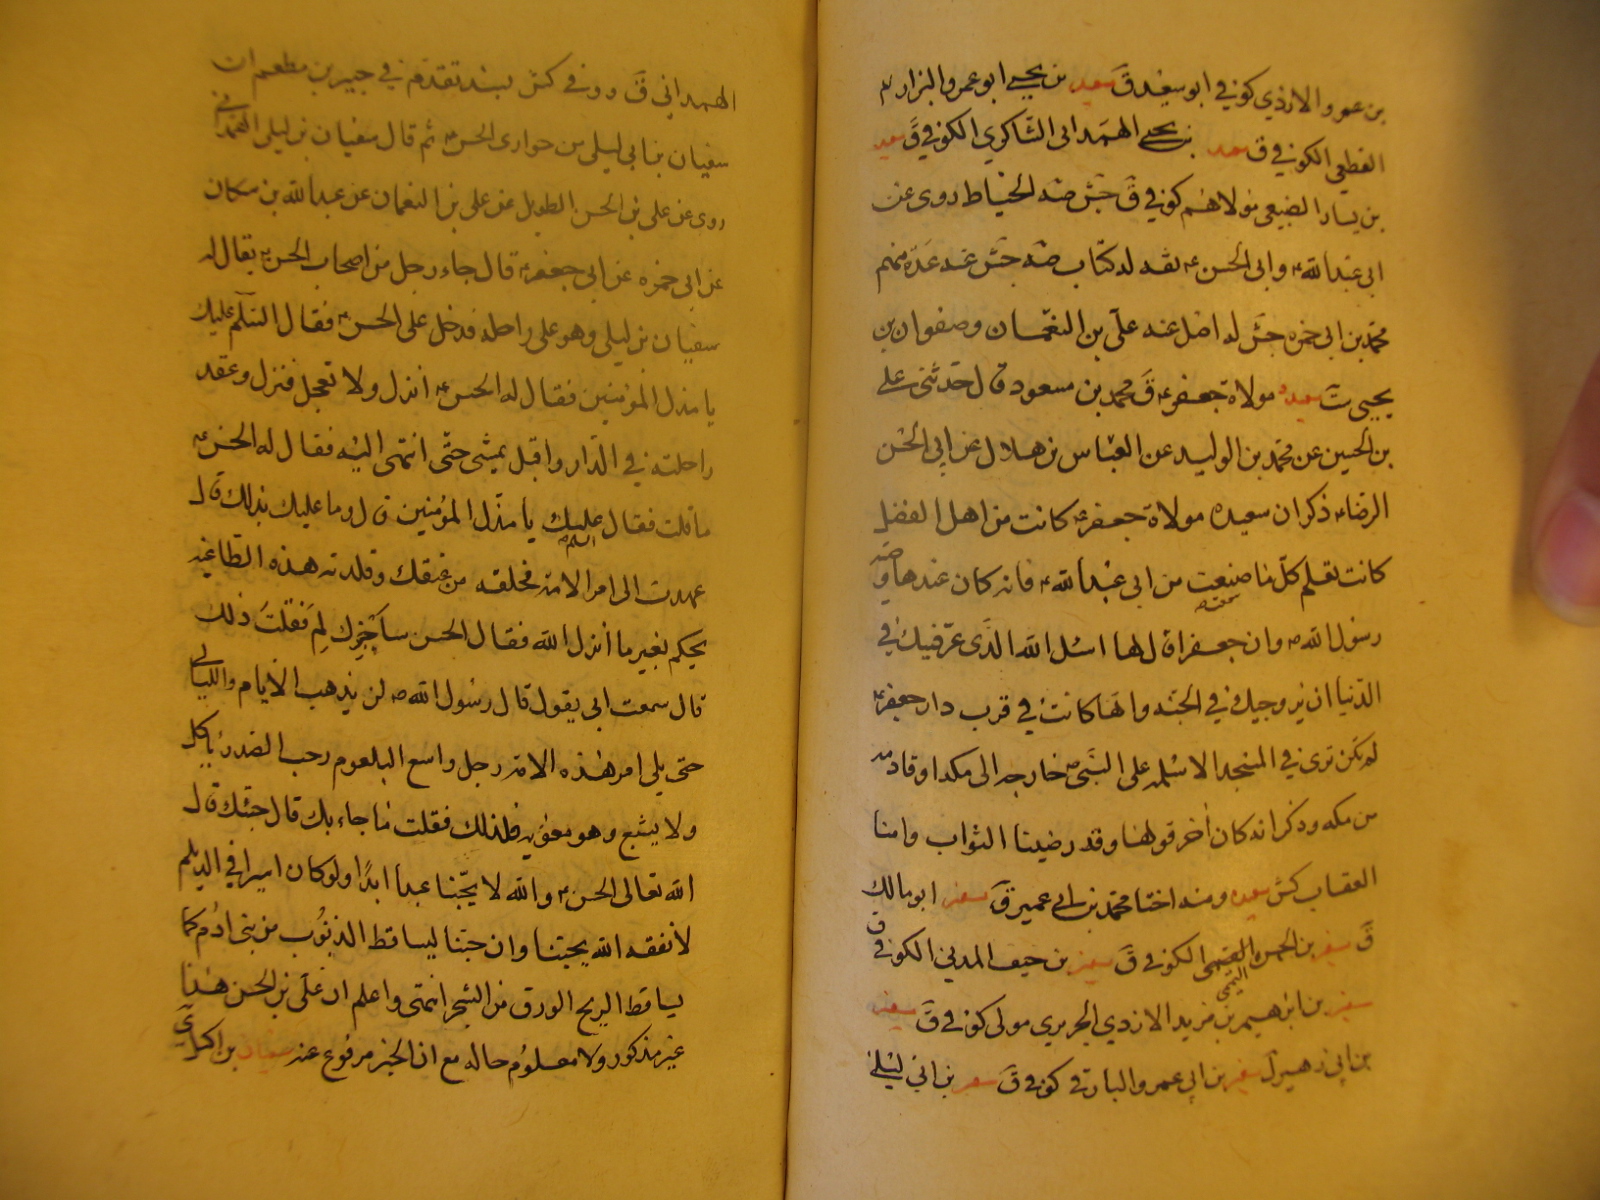 بن عمرو الازدي كوفي ابو سعيد ق سعيد بن يحيى ابو عمرو البزاز لم
القطعي الكوفي ق سعيد بن يحيى الهمداني الشاكري الكوفي ق سعيد
بن يسار الضبعي مولاهم كوفي ق جش ضه الحناط روى عن
ابى عبد الله ع وابى الحسن ع ثقه له كتاب ضه جش عنه عدة منهم
محمد بن ابى حمزه جش له اصل عنه على بن النعمان وصفوان بن
يحيى ست سعيده مولاة جعفر ع ق محمد بن مسعود قال حدثنى على
بن الحسين عن محمد بن الوليد عن العباس بن هلال عن ابى الحسن
الرضا ع ذكر ان سعيده مولاة جعفر ع كانت من اهل الفضل
كانت تعلم كل ما سمعت من ابى عبد الله ع فانه كان عندها وصية
رسول الله ص وان جعفرا قال لها اسئل الله الذى عرفنيك فى
الدنيا ان يزوجنيك فى الجنه وانها كانت فى قرب دار جعفر ع
لم تكن ترى فى المسجد الا مسلمه على النبى ص خارجه الى مكه او قادمه
من مكه وذكر انه كان اخر قولها وقد رضينا الثواب وامنا
العقاب كش سعيده ومنه اختا محمد بن ابى عمير ق سفر ابو مالك
ق سفر بن الحمره التميمى الكوفى ق بن المدنى الكوفى ق
بن ابرهيم بن مزيد الازدي الجريري مولى كوفى ق
بن ابى عمرو البارقى كوفى ق بن ابى ليلى
الهمدانى ق وفى كش بسند تقدم فى جبير بن مطعم ان
سفيان بن ابى ليلى من حوارى الحسن ع ثم قال سفيان بن ليلى الهمدانى
روى عن على بن الحسن الطويل عن على بن النعمان عن عبد الله بن مسكان
عن ابى حمزه عن ابى جعفر ع قال جاء رجل من اصحاب الحسن ع يقال له
سفيان بن ليلى وهو على راحله فدخل على الحسن ع فقال السلم عليك
يا مذل المؤمنين فقال له الحسن ع انزل ولا تعجل فنزل وعقد
راحلته فى الدار واقبل يمشى حتى انتهى اليه فقال له الحسن ع
ما قلت فقال السلم عليك يا مذل المؤمنين قال وما علمك بذلك قال
عمدت الى امر الامه فخلعته من عنقك وقلدته هذه الطاغيه
يحكم بغير ما انزل الله فقال الحسن ساخبرك لم فعلت ذلك
قال سمعت ابى يقول قال رسول الله ص لن يذهب الايام والليالى
حتى يلى امر هذه الامه رجل واسع البلعوم رحب الصدر ياكل
ولا يشبع وهو معويه فلذلك فعلت ما جاء بك قال حبك قال
الله تعالى الحسن ع والله لا يحبنا عبد ابدا ولو كان اسيرا فى الديلم
لا نفعه الله بحبنا وان حبنا ليساقط الذنوب من بنى ادم كما
يساقط الريح الورق من الشجر انتهى واعلم ان على بن الحسن هذا
غير مذكور ولا معلوم حاله مع ان الخبر مرفوع عنه سفيان بن اكيل